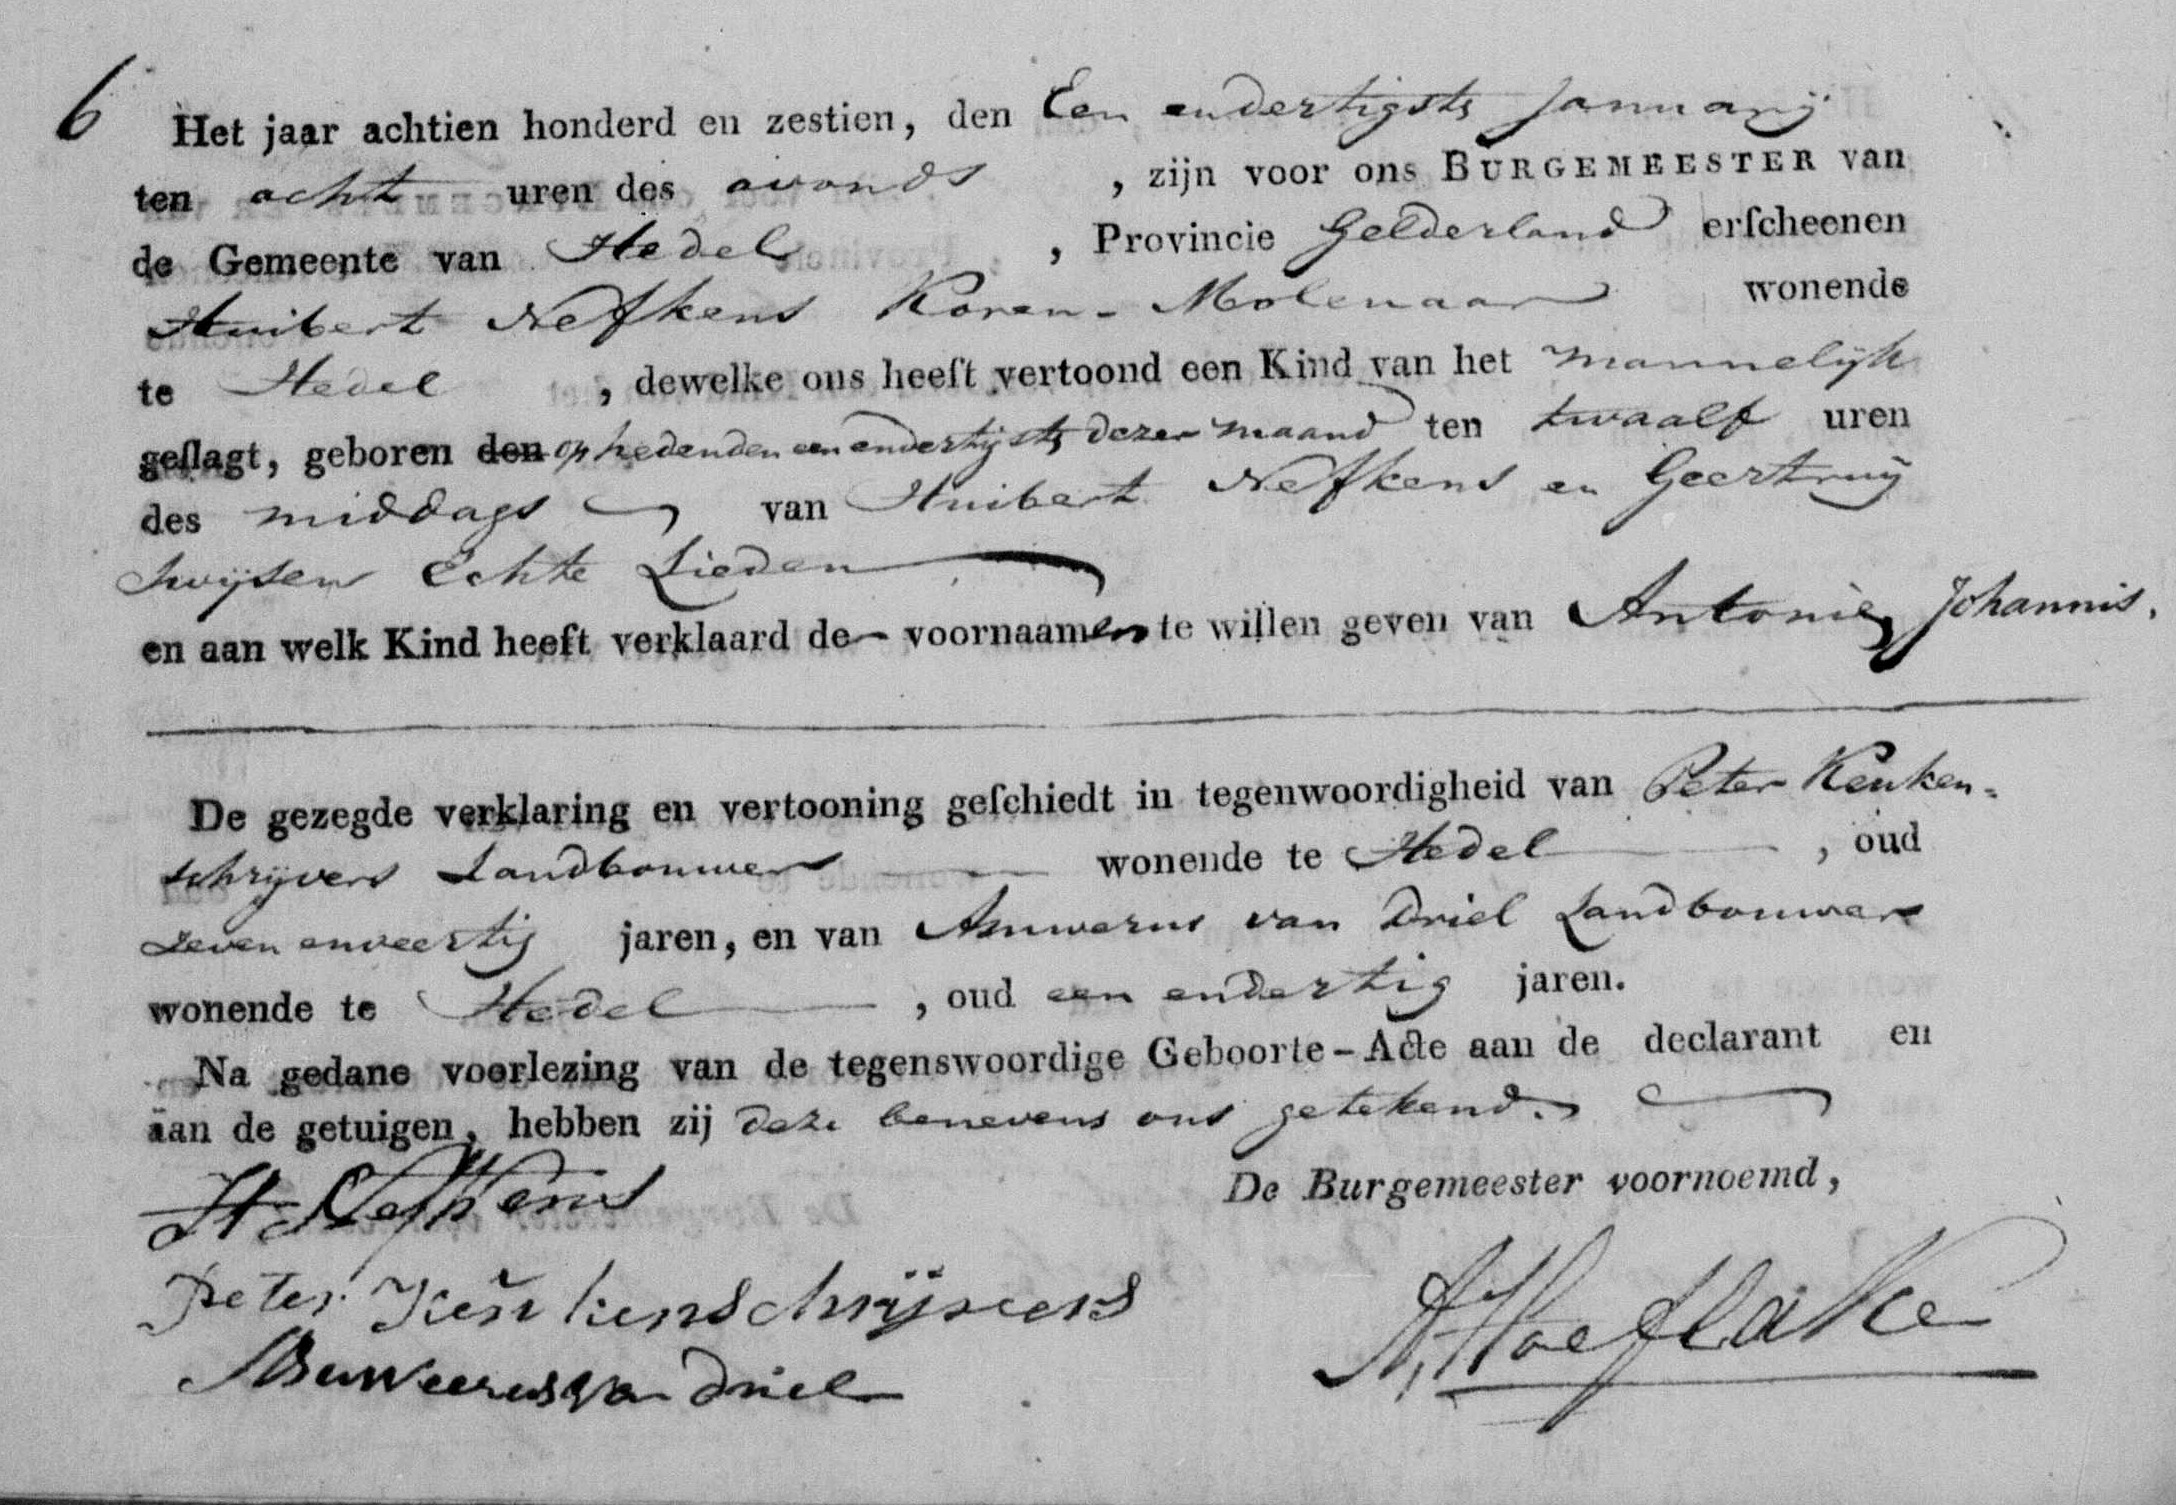 6
Het jaar achtien honderd en zestien, den Een endertigste January
ten acht uren des avonds , zijn voor ons BURGEMEESTER van
de Gemeente van Hedel , Provincie Gelderland erſcheenen
Huibert Nefkens Koren-Molenaar wonende
te Hedel , dewelke ons heeft vertoond een Kind van het mannelijk
geſlagt, geboren den op heden den een endertigste dezer maand ten twaalf uren
des middags van Huibert Nefkens en Geertruy
Swijsen Echte Lieden
en aan welk Kind heeft verklaard de voornaamen te willen geven van Antonie Johannis.
De gezegde verklaring en vertooning geſchiedt in tegenwoordigheid van Peter Keuken-
schrijvers Landbouwer wonende te Hedel , oud
zeven enveertig jaren, en van Anwerus van Driel Landbouwer
wonende te Hedel , oud een endertig jaren.
Na gedane voorlezing van de tegenswoordige Geboorte-Acte aan de declarant en
aan de getuigen, hebben zij deze benevens ons getekend.
De Burgemeester voornoemd,
H Nefkens
Peter Keukenschrijvers
van Driel